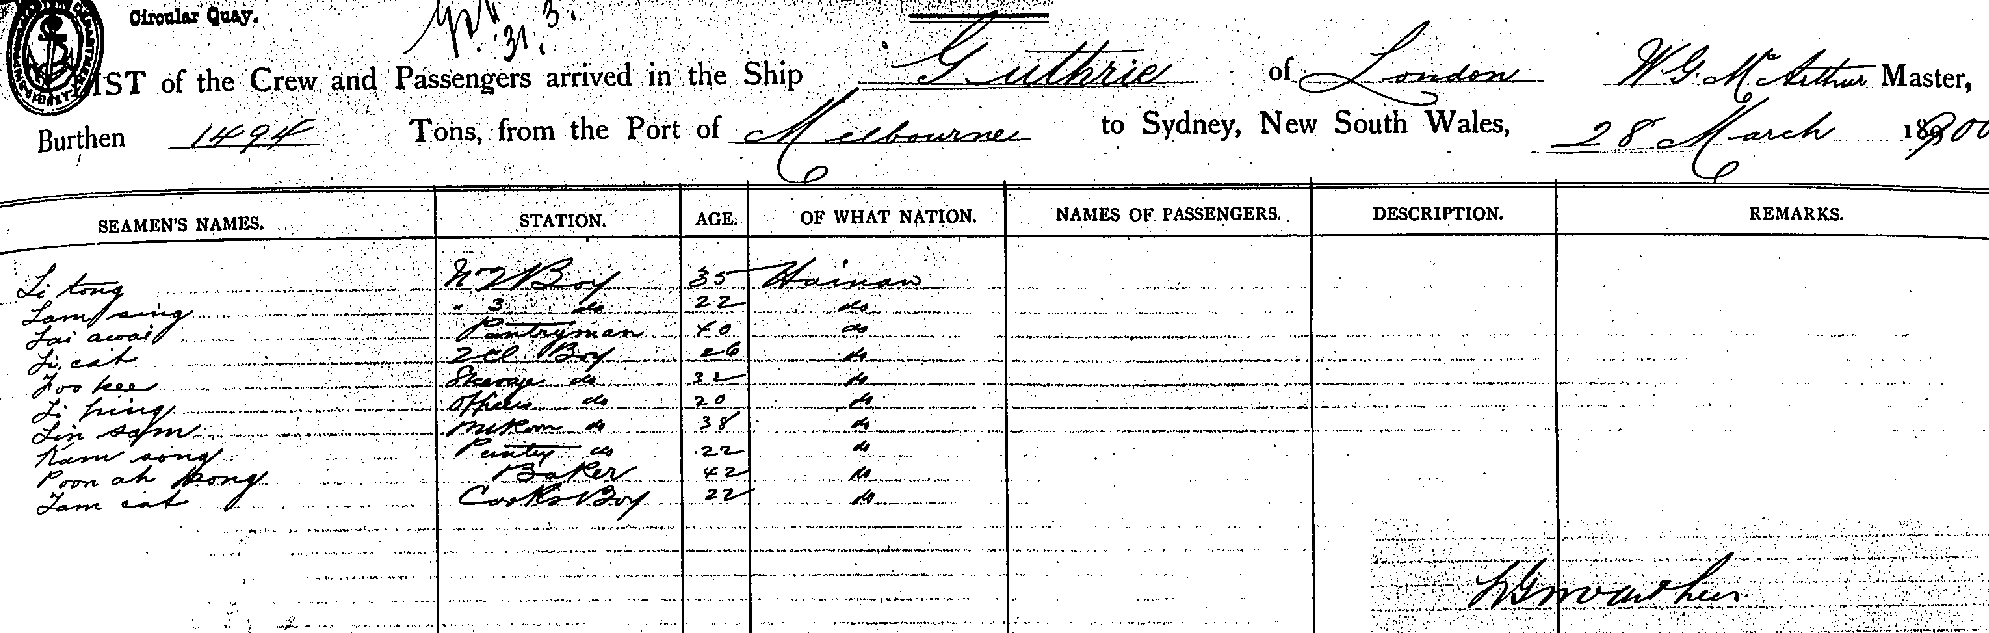 Circular Quay.
31.3.
LIST of the Crew and Passengers arrived in the Ship Guthrie of London W. G. McArthur Master,
Burthen 1494 Tons, from the Port of Melbourne to Sydney, New South Wales, 28 March 1900
SEAMEN'S NAMES. STATION. AGE. OF WHAT NATION. NAMES OF PASSENGERS. DESCRIPTION. REMARKS.
Li tong No 2 Boy 35 Hainan
Lam sing " 3 do 22 do
Lai awai Pantryman 40 do
Li cat 2 Cl Boy 26 do
Foo kee Steerage do 32 do
Li hing Officers do 20 do
Lin sam do 38 do
Kam song Pantry do 22 do
Poon ah kong Baker 42 do
Tam cat Cooks Boy 22 do